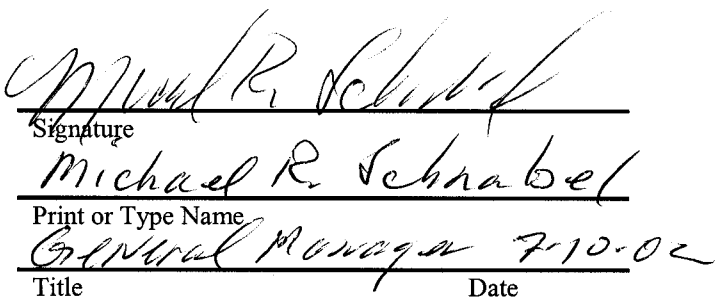 Michael R. Schnabel
Signature
Michael R. Schnabel
Print or Type Name
General Manager 7-10-02
Title Date